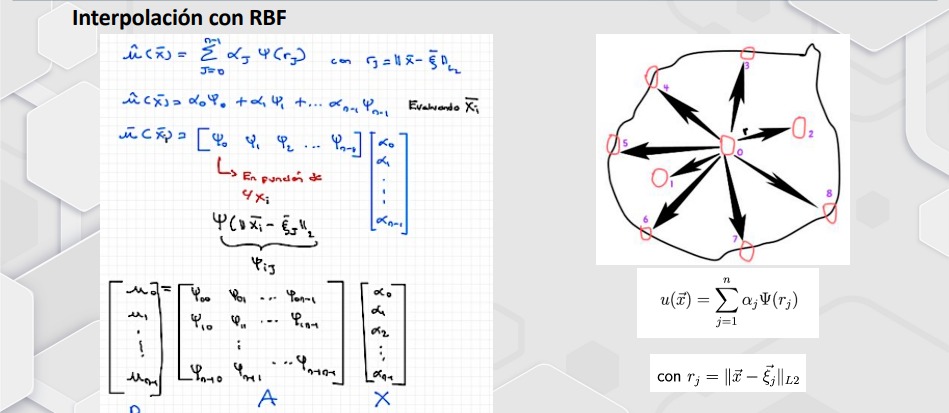 Interpolación con RBF
û(x̄) = Σ_{J=0}^{n-1} α_J Ψ(r_J) con r_J = ||x̄ - ξ̄||_{L2}
û(x̄) = α₀Ψ₀ + α₁Ψ₁ + ... α_{n-1}Ψ_{n-1} Evaluando x̄ᵢ
ū(x̄ᵢ) = [Ψ₀ Ψ₁ Ψ₂ ... Ψ_{n-1}] [α₀ α₁ ⋮ α_{n-1}]
↳ En función de
Ψ(||x̄ᵢ - ξ̄_J||₂
Ψ_{iJ}
[u₀ u₁ ⋮ u_{n-1}] = [Ψ₀₀ Ψ₀₁ ... Ψ_{0n-1}
Ψ₁₀ Ψ₁₁ ... Ψ_{1n-1}
⋮
Ψ_{n-10} Ψ_{n-11} ... Ψ_{n-1n-1}] [α₀ α₁ α₂ ⋮ α_{n-1}]
A X
3
4
r
2
5
0
1
8
6
7
u(x⃗) = Σ_{j=1}^{n} α_jΨ(r_j)
con r_j = ||x⃗ - ξ⃗_j||_{L2}